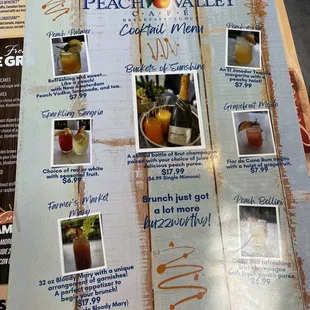 PEACH VALLEY
CAFE
Cocktail Menu
Peach Palmer
Refreshing and sweet...
Like a
with New
Peach Vodka, lemonade, and tea.
$7.99
Sparkling Sangria
Choice of red or white
with seasonal fruit.
$6.99
Farmer's Market
Mary
32 oz Bloody Mary with a unique
arrangement of garnishes!
A perfect appetizer to
begin your brunch!
$17.99
Bloody Mary)
Buckets of Sunshine
A chilled bottle of Brut champagne
paired with your choice of juice
delicious peach puree.
$17.99
($6.99 Single Mimosa)
Brunch just got
a lot more
buzzworthy!
An El Jimador Tequila
margarita with a
peachy twist!
$7.99
Grapefruit Mojito
Flor de Cana Rum mojito
with a twist of grapefruit.
$7.99
Peach Bellini
and refreshing
with peach puree
$6.99